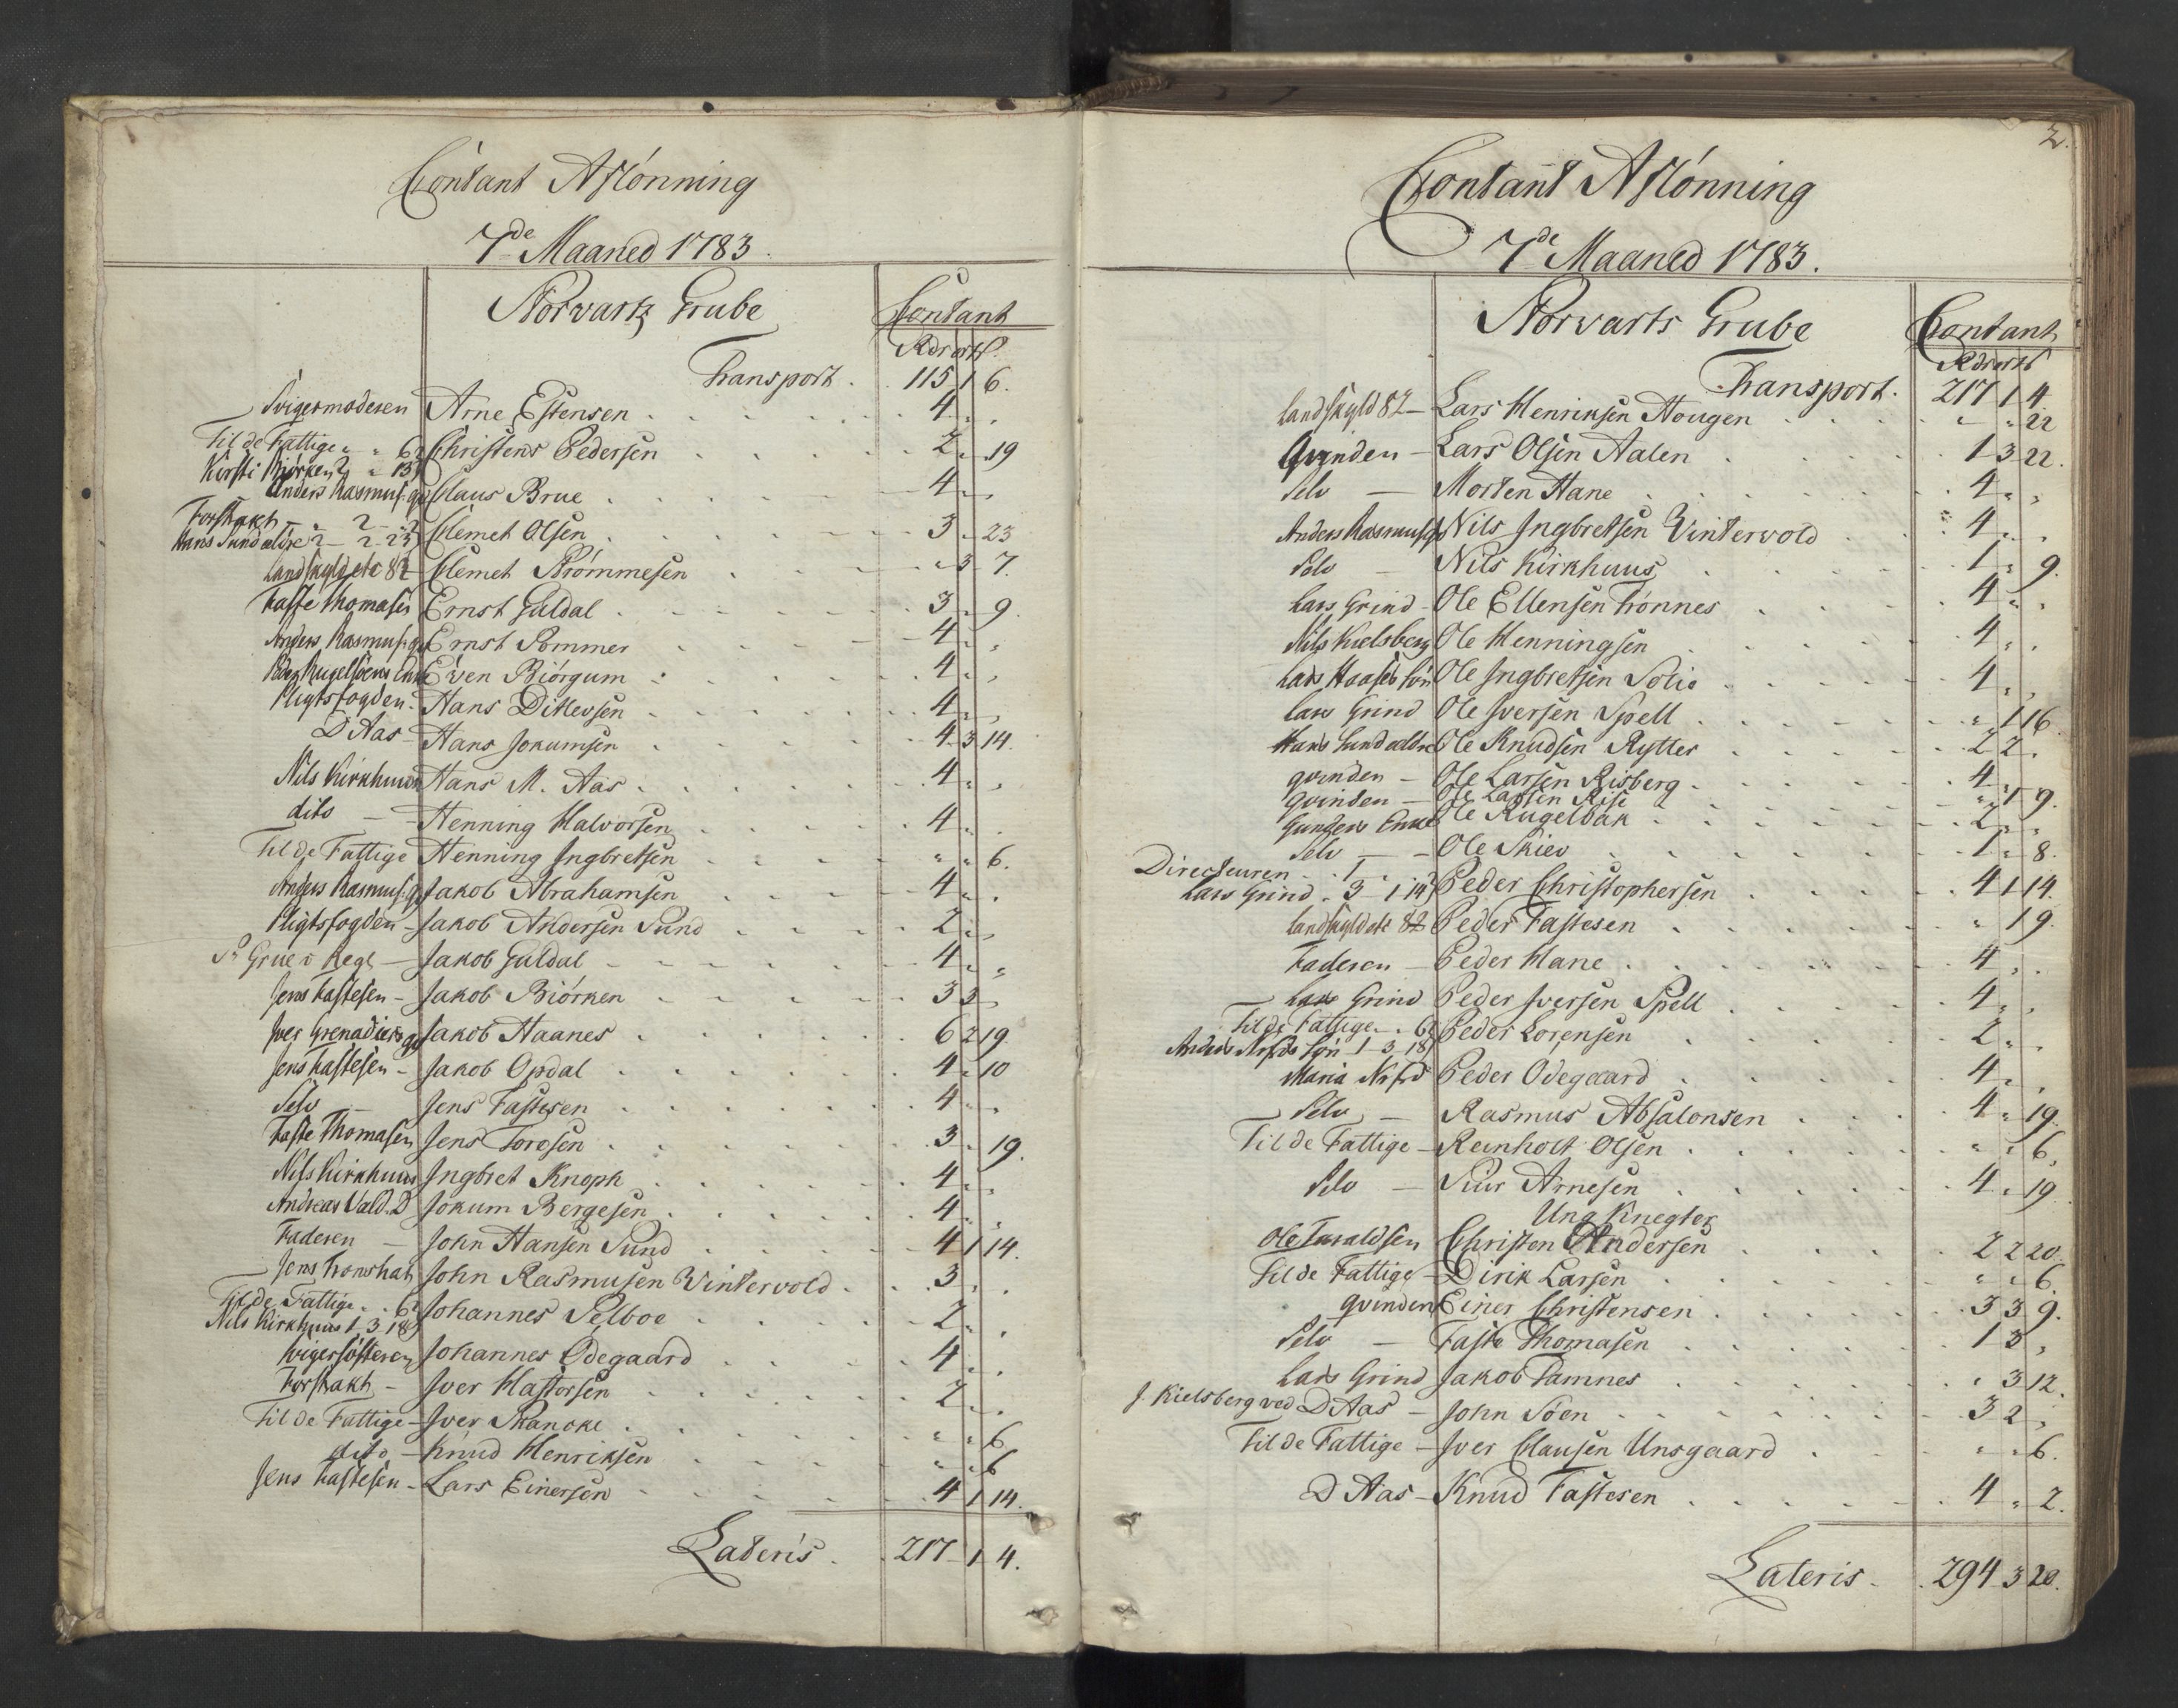 Contant Aflönning
7de Maaned 1783.
Norvarts Grube
Contant
Rdr ort ſ.
Transport. 115 1 6.
Svigermoderen Arne Estensen 4 " "
Til de Fattige " " 6 Christens Pedersen 2 " 19
Kirsti Biörken 2 " 13
Anders Rasmus. qv Claus Brue 4 " "
Forstrakt Clemet Olsen 3 " 23
Hans Sund ældre 2 2 23
Landskyld etc 82 Clemet Trömmesen " 3 7.
Faste Thomasen Ernst Guldal 3 " 9
Anders Rasmus. qv Ernst Pommer 4 " "
Even Biörgum 4 " "
Pligtsfogden Hans Ditlevsen 4 " "
D Aas Hans Jokumsen 4 3 14.
Nils Kirkhuus Hans M. Aas 4 " "
dito Henning Halvorsen 4 " "
Til de Fattige Henning Ingbretsen " " 6.
Anders Rasmus. q Jakob Abrahamsen 4 " "
Pligtsfogden Jakob Andersen Sund 2 " "
Jakob Guldal 4 " "
Jens Fastesen Jakob Biörken 3 3 "
Iver Grenadiers qv Jakob Haanes 6 2 19
Jens Fastesen Jakob Opdal 4 " 10
Selv Jens Fastesen 4 " "
Faste Thomasen Jens Toresen 3 " 19.
Nils Kirkhuus Ingbret Knoph 4 " "
Andreas Vald. D Jokum Bergesen 4 " "
Faderen John Hansen Sund 4 1 14.
Jens Tronshat John Rasmusen Vintervold 3 " "
Til de Fattige " " 6 Johannes Selboe 2 " "
Nils Kirkhuus 1 3 18
Svigersösteren Johannes Ödegaard 4 " "
Forstrakt Iver Hastorsen 2 " "
Til de Fattige Iver Skancke " " 6
dito Knud Henriksen " " 6
Jens Fastesen Lars Einersen 4 1 14.
Lateris. 217 1 4.
2.
Contant Aflönning
7de Maaned 1783.
Norvarts Grube
Contant
Rdr ort ſ
Transport. 217 1 4.
Landskyld 82 Lars Henriksen Hougen " " 22
Qvinden Lars Olsen Aalen 1 3 22.
Selv Morten Hane 4 " "
Anders Rasmus. q Nils Ingbretsen Vintervold 4 " "
Selv Nils Kirkhuus 1 " 9.
Lars Grind Ole Ellensen Trönnes 4 " "
Nils Kielsberg Ole Henningsen 4 " "
Lars Haases Sön Ole Ingbretsen Solie 4 " "
Lars Grind Ole Iversen Spell " 1 16
Hans Sund ældre Ole Knudsen Rytter 2 2 "
qvinden Ole Larsen Risberg 4 " "
Qvinden Ole Larsen Rise " 1 9.
Gunders Enke Ole Rugelbak 2 " "
Selv Ole Skiev 1 " 8.
Directeuren 1 " " Peder Christophersen 4 1 14.
Lars Grind 3 1 14
Landskyld etc 82 Peder Fastesen " 1 9.
Faderen Peder Hane 4 " "
Lars Grind Peder Iversen Spell 4 " "
Til de Fattige " " 6 Peder Lorensen 2 " "
Sön 1 3 18
Peder Ödegaard 4 " "
Selv Rasmus Absalonsen 4 " 19.
Til de Fattige Reinholt Olsen " " 6.
Selv Siur Arnesen 4 " 19
Ung Knegter
Ole Taraldsen Christen Andersen 2 2 20.
Til de Fattige Dirik Larsen " " 6.
qvinden Einer Christensen 3 3 9.
Selv Faste Thomasen 1 3 "
Lars Grind Jakob Tamnes " 3 12.
J. Kielsberg ved D Aas John Söen 3 2 "
Til de Fattige Iver Clausen Unsgaard " " 6.
D Aas Knud Fastesen 4 " 2.
Lateris. 294 3 20.